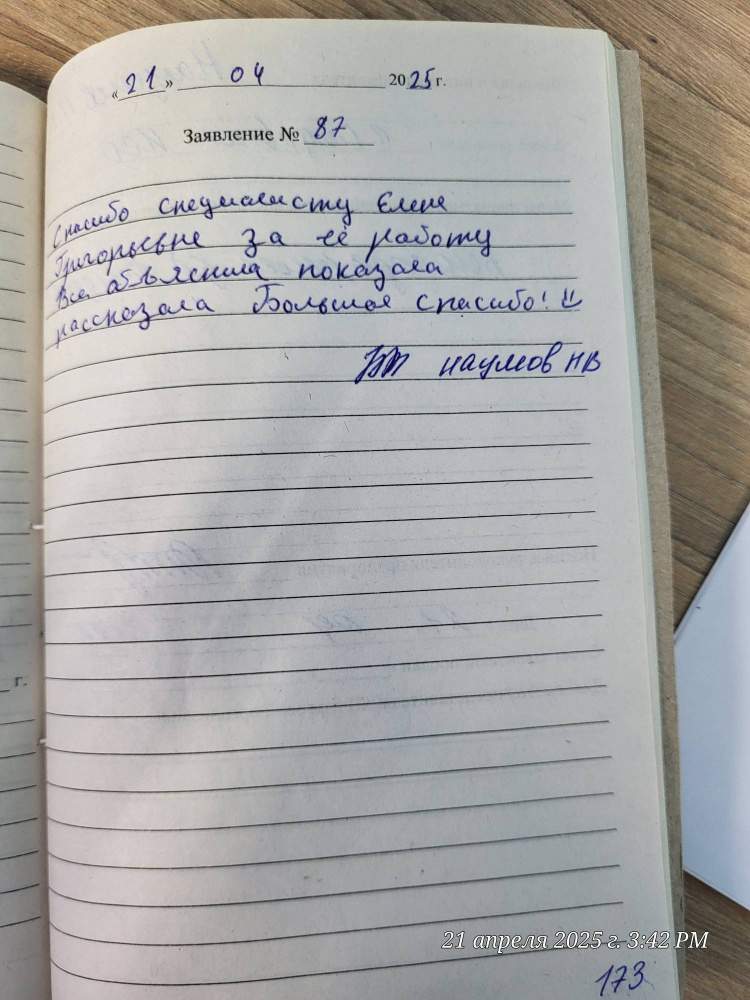 «21» 04 2025 г.
Заявление № 87
Спасибо специалисту Елене
Григорьевне за её работу
Все объяснила показала
рассказала Большое спасибо!
Наумов НВ
г.
21 апреля 2025 г. 3:42 PM
173